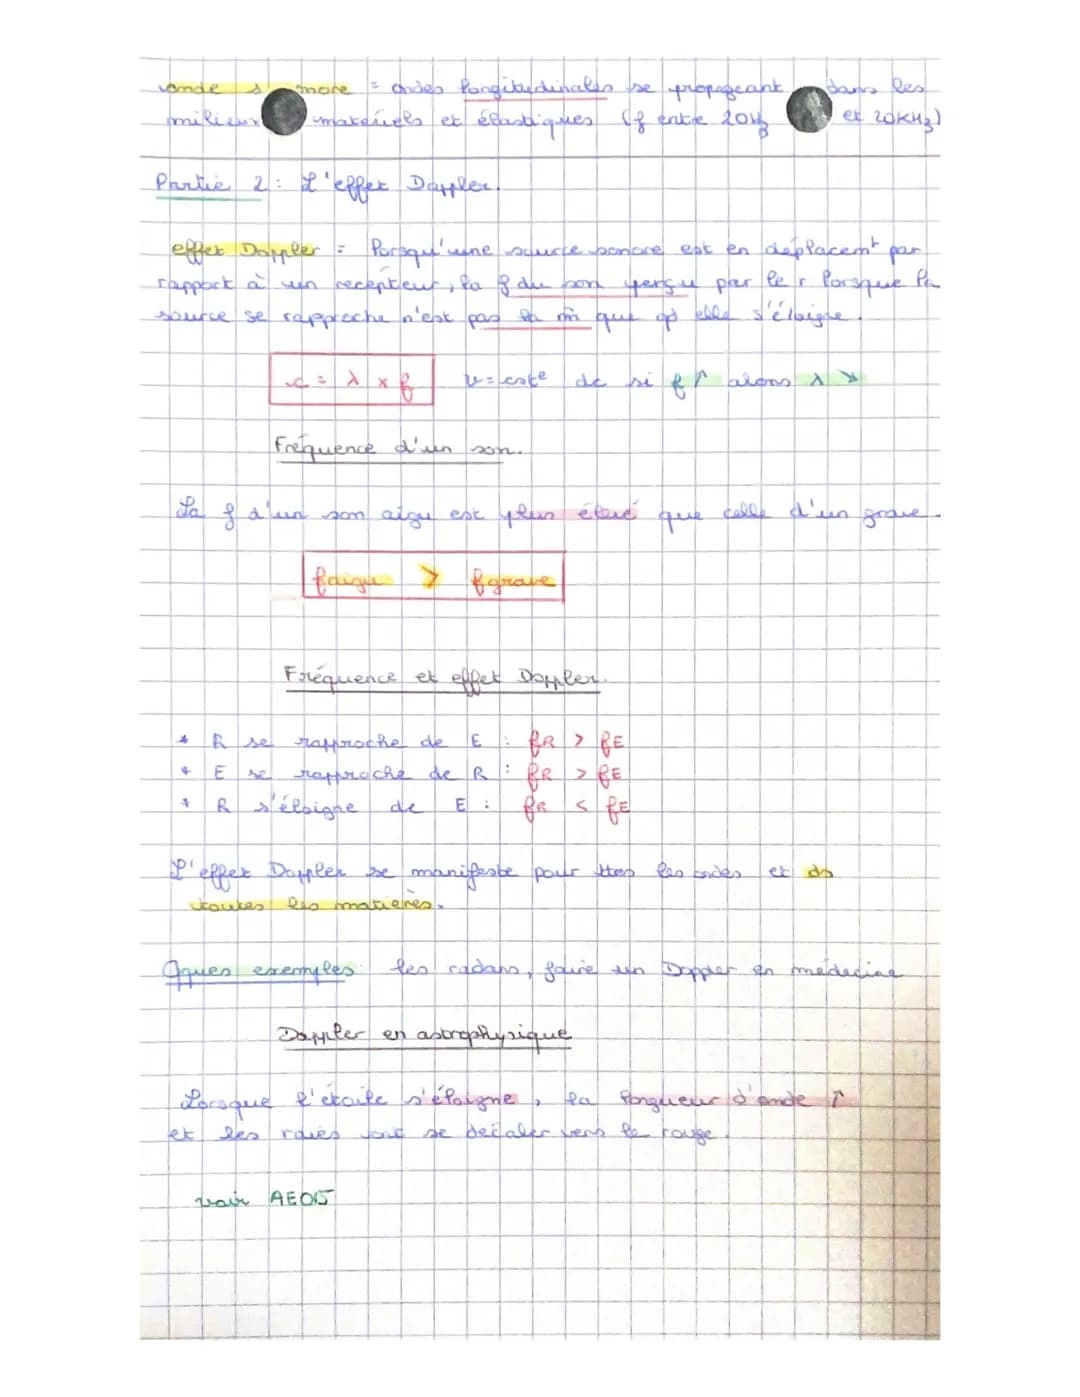 onde s more = ondes longitudinales se propageant dans les
milieux matériels et élastiques (f entre 20Hz et 20KHz)
Partie 2 : L'effet Doppler.
effet Doppler = lorsqu'une source sonore est en déplacemt par
rapport à un récepteur, la f du son perçu par le r lorsque la
source se rapproche n'est pas la m̂ que qd elle s'éloigne.
c = λ x f v = cste dc si f ↑ alors λ ↘
Fréquence d'un son.
La f d'un son aigu est plus élevé que celle d'un grave.
faigu > fgrave
Fréquence et effet Doppler.
* R se rapproche de E : fR > fE
* E se rapproche de R : fR > fE
* R s'éloigne de E : fR < fE
L'effet Doppler se manifeste pour ttes les ondes et ds
toutes les matières.
Qques exemples : les radars, faire un Doppler en médecine
Doppler en astrophysique
Lorsque l'étoile s'éloigne, la longueur d'onde ↑
et les raies vont se décaler vers le rouge.
voir AE015